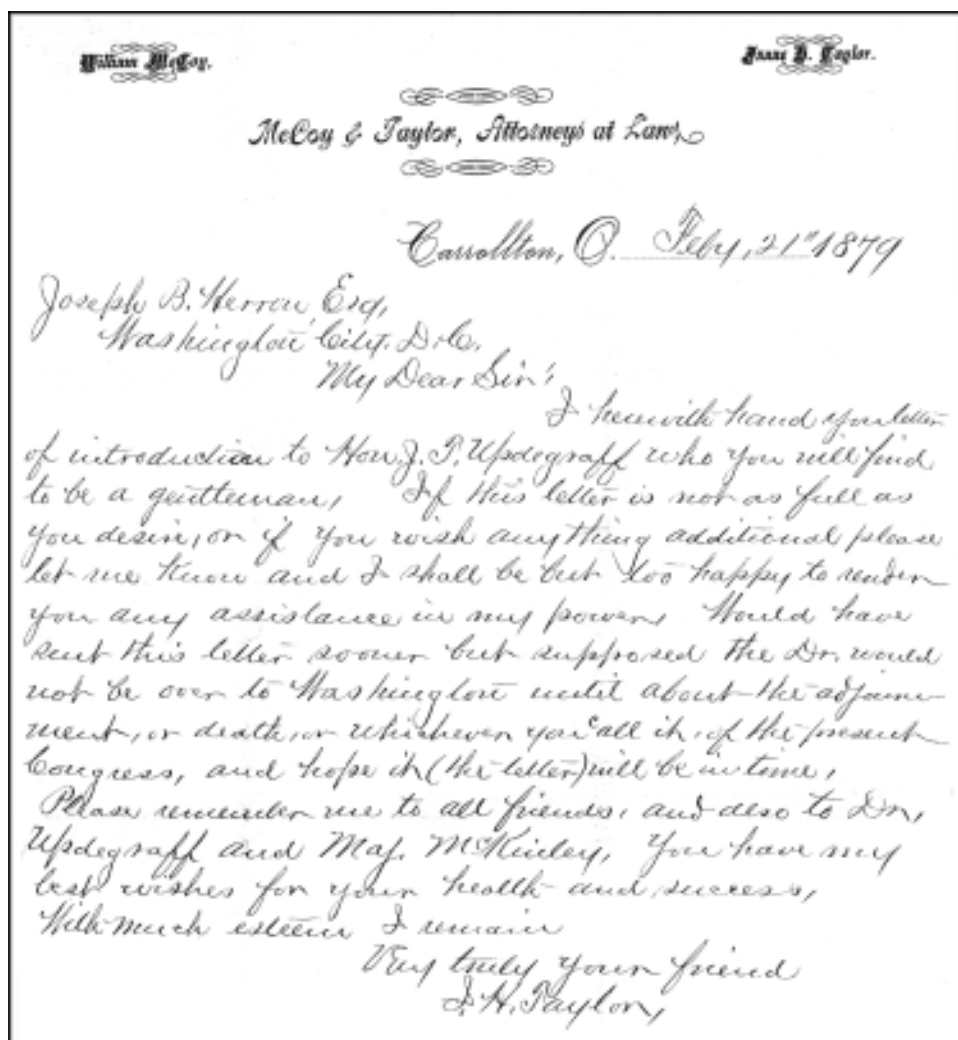 William McCoy.
Isaac H. Taylor.
McCoy & Taylor, Attorneys at Law,
Carrollton, O. Feby, 21" 1879
Joseph B. Herron, Esq,
Washington City. D.C.
My Dear Sir:
I herewith hand you letter
of introduction to Hon. J. T. Updegraff who you will find
to be a gentleman, If this letter is not as full as
you desire, or if you wish anything additional please
let me know and I shall be but too happy to render
you any assistance in my power, Would have
sent this letter sooner but supposed the Dr. would
not be over to Washington until about the adjourn-
ment, or death, or whichever you call it, of the present
Congress, and hope it (the letter) will be in time,
Please remember me to all friends, and also to Dr,
Updegraff and Maj. McKinley, You have my
best wishes for your health and success,
With much esteem I remain
Very truly your friend
I. H. Taylor,